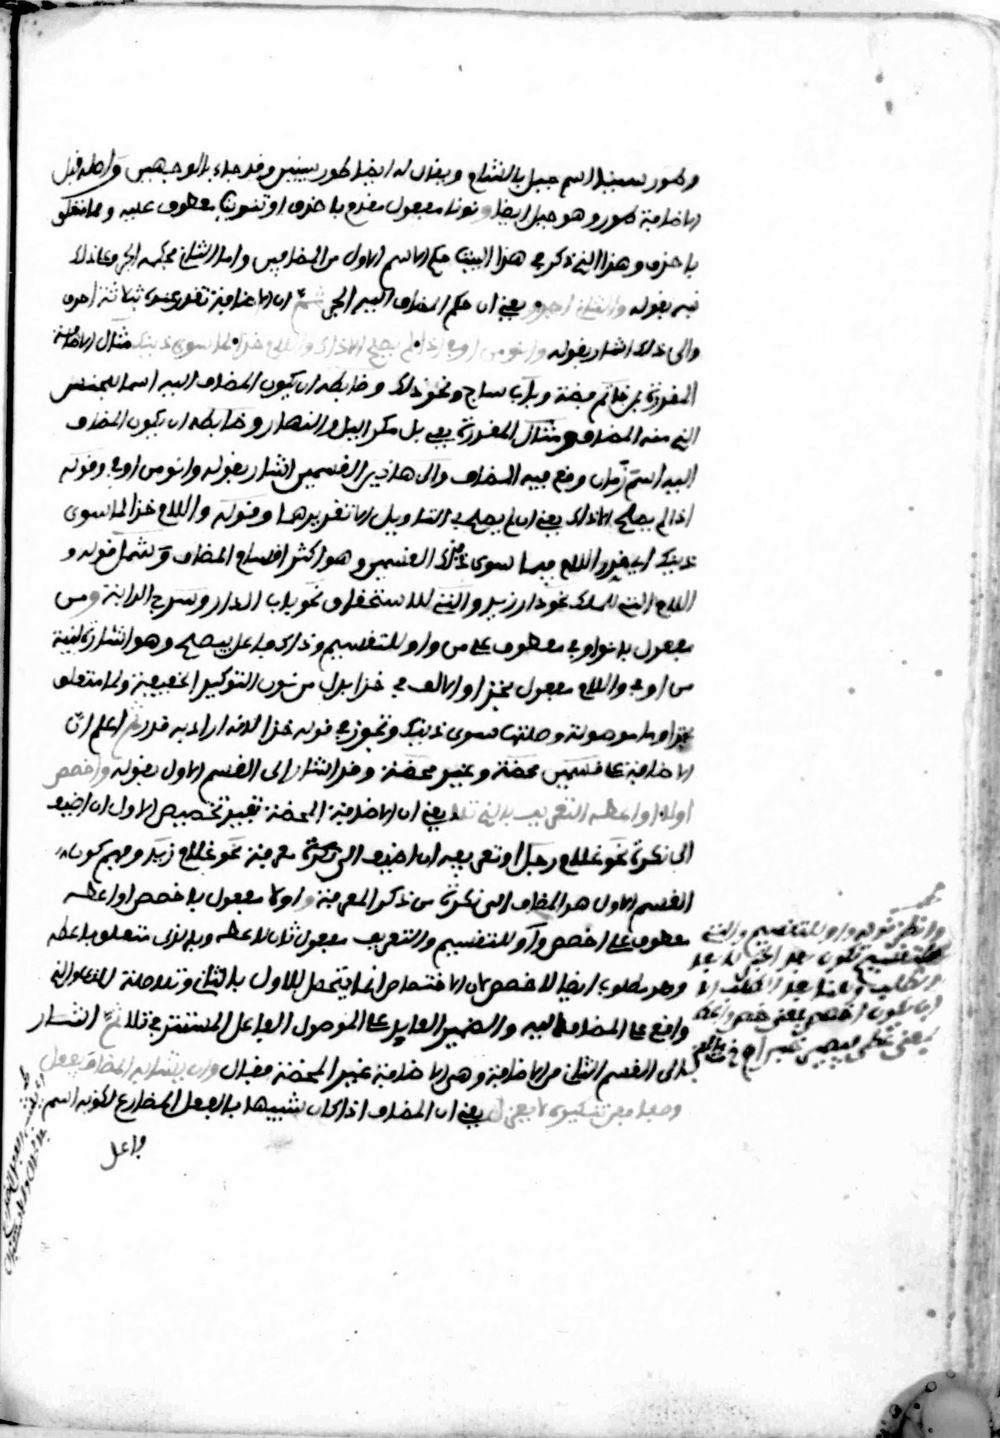 وطور سينا اسم جبل بالشام ويقال له ايضا طور سينين وقد جاء بالوجهين واصله قبل
الاضافة طور وهو جبل ايضا ونونا مفعول مقدم باحذف او تنوينا معطوف عليه ومما متعلق
باحذف وهذا الذي ذكر في هذا البيت حكم الاسم الاول من المضافين واما الثاني فحكمه الجر وعلى ذلك
نبه بقوله والثاني اجرر يعني ان حكم المضاف اليه الجر ثم ان الاضافة تقدر عندهم بثلاثة احرف
والى ذلك اشار بقوله وانو من او في اذا لم يصلح الا ذاك واللام خذا لما سوى ذينك مثال الاضافة
المقدرة بمن خاتم فضة وباب ساج ونحو ذلك وضابطه ان يكون المضاف اليه اسما للجنس
الذي منه المضاف ومثال المقدرة بفي بل مكر الليل والنهار وضابطه ان يكون المضاف
اليه اسم زمان وقع فيه المضاف والى هاذين القسمين اشار بقوله وانو من او في وقوله
اذا لم يصلح الا ذاك يعني ان لم يصلح في التاويل الا تقديرهما وقوله واللام خذا لما سوى
ذينك اي قدر اللام فيما سوى ذينك القسمين وهو اكثر اقسام المضاف وشمل قوله و
اللام التي للملك نحو دار زيد والتي للاستحقاق نحو باب الدار وسرج الدابة ومن
مفعول بانو او في معطوف على من واو للتقسيم وذاك فاعل بيصلح وهو اشارة لنية
من او في واللام مفعول بخذا والالف في خذا بدل من نون التوكيد الخفيفة ولما متعلق
بخذا وما موصولة وصلتها سوى ذينك وتجوز في قوله خذا لانه اراد به قدر ثم اعلم ان
الاضافة على قسمين محضة وغير محضة وقد اشار الى القسم الاول بقوله واخصص
اولا او اعطه التعريف بالذي تلا يعني ان الاضافة المحضة تفيد تخصيص الاول ان اضيف
الى نكرة نحو غلام رجل او تعريفه ان اضيف الى معرفة نحو غلام زيد وفهم كون
القسم الاول هو المضاف الى نكرة من ذكر المعرفة واولا مفعول باخصص او اعطه
معطوف على اخصص واو للتقسيم والتعريف مفعول ثان لاعطه وبالذي متعلق باعطه
وهو مطلوب ايضا لاخصص لان الاختصاص انما يتحصل للاول بالثاني وتلا صلة للذي والذي
واقع على المضاف اليه والضمير العايد على الموصول الفاعل المستتر في تلا ثم اشار
الى القسم الثاني من الاضافة وهي الاضافة غير المحضة فقال وان يشابه المضاف يفعل
وصفا فعن تنكيره لا يعزل يعني ان المضاف اذا كان شبيها بالفعل المضارع لكونه اسم
فاعل
وانظر قوله واو للتقسيم والتي